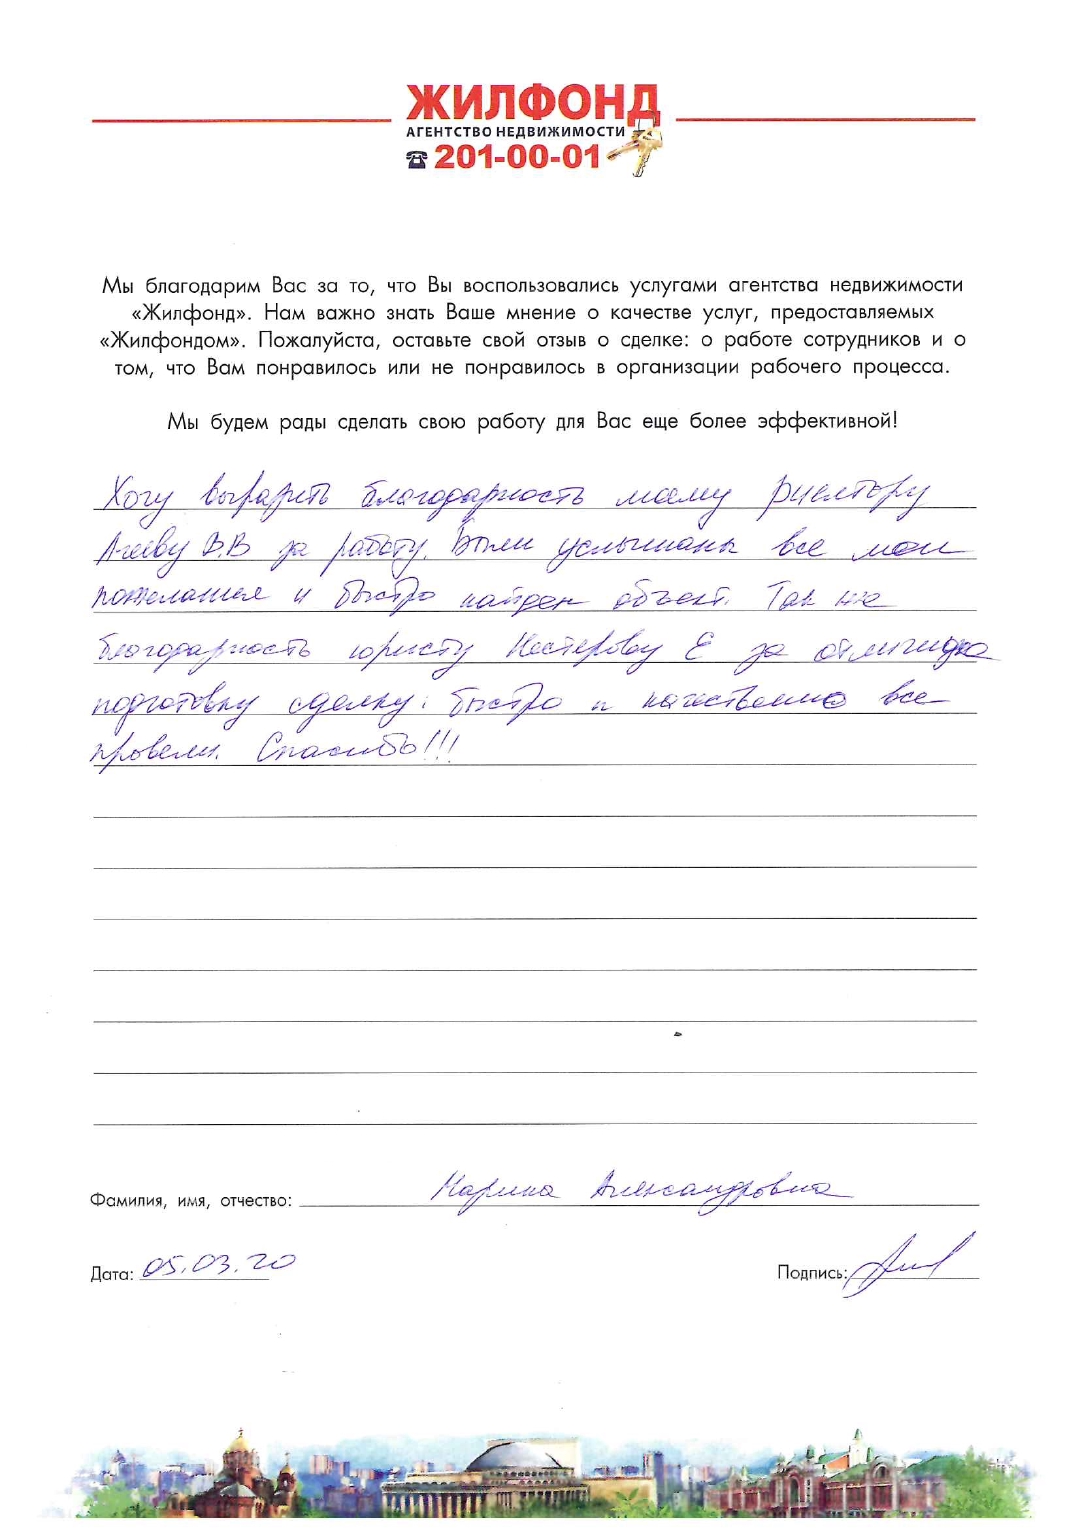 ЖИЛФОНД
АГЕНТСТВО НЕДВИЖИМОСТИ
201-00-01
Мы благодарим Вас за то, что Вы воспользовались услугами агентства недвижимости
«Жилфонд». Нам важно знать Ваше мнение о качестве услуг, предоставляемых
«Жилфондом». Пожалуйста, оставьте свой отзыв о сделке: о работе сотрудников и о
том, что Вам понравилось или не понравилось в организации рабочего процесса.
Мы будем рады сделать свою работу для Вас еще более эффективной!
Хочу выразить благодарность моему риелтору
Агееву В.В за работу. Были услышаны все мои
пожелания и быстро найден объект. Так же
благодарность юристу Нестерову Е за
подготовку сделки. быстро и качественно все
провели. Спасибо!!!
Фамилия, имя, отчество: Марина Александровна
Дата: 05.03.20
Подпись: